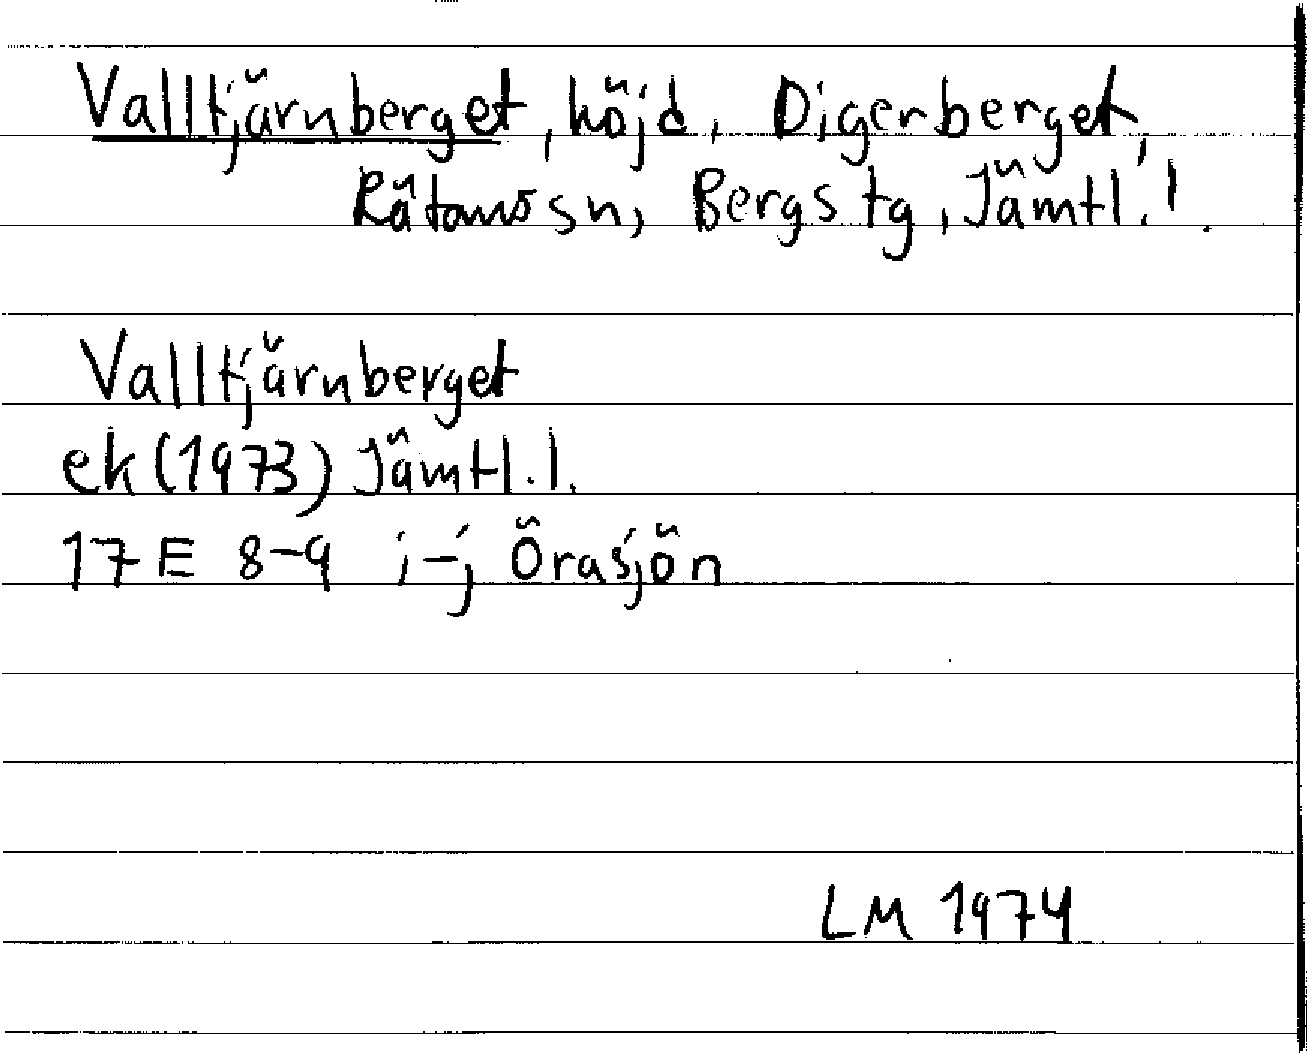 Valltjärnberget, höjd, Digerberget,
Rätans sn, Bergs tg, Jämtl. l.
Valltjärnberget
ek (1973) Jämtl. l.
17 E 8-9 i-j Örasjön
LM 1974